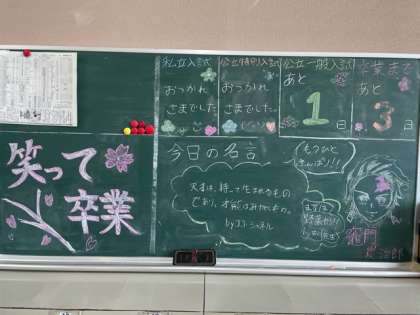 私立入試
おつかれ
さまでした
公立特別入試
おつかれ
さまでした。
公立一般入試
あと
1日
卒業まで
あと
3日
笑って
卒業
今日の名言
才能は、持って生まれるもの
であり、本能はみがくもの。
byココ・シャネル
もうひと
がんばり!!
竈門
炭治郎